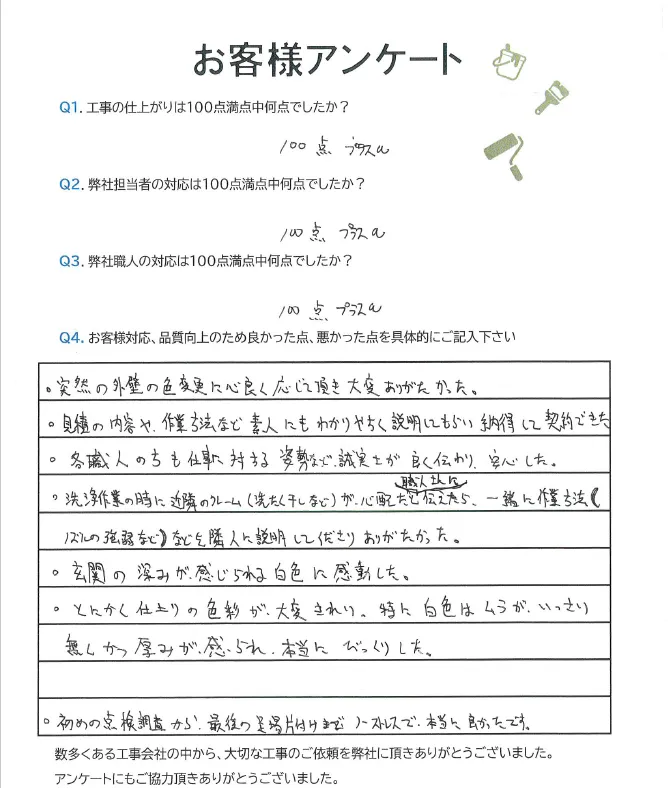 お客様アンケート
Q1. 工事の仕上がりは100点満点中何点でしたか？
100点 プラスα
Q2. 弊社担当者の対応は100点満点中何点でしたか？
100点 プラスα
Q3. 弊社職人の対応は100点満点中何点でしたか？
100点 プラスα
Q4. お客様対応、品質向上のため良かった点、悪かった点を具体的にご記入下さい
。突然の外壁の色変更に心良く応じて頂き大変ありがたかった。
。見積の内容や、作業方法など素人にもわかりやすく説明してもらい納得して契約できた
。各職人の方も仕事に対する姿勢など、誠実さが良く伝わり、安心した。
職人さんに
。洗浄作業の時に近隣のクレーム(洗たく干しなど)が、心配だと伝えたら、一緒に作業方法(
ノズルの強弱など)などを隣人に説明してくださりありがたかった。
。玄関の深みが感じられる白色に感動した。
。とにかく仕上りの色彩が、大変きれい。特に白色はムラが、いっさい
無くかつ厚みが、感じられ、本当にびっくりした。
。初めの点検調査から、最後の足場片付けまでノーストレスで、本当に良かったです。
数多くある工事会社の中から、大切な工事のご依頼を弊社に頂きありがとうございました。
アンケートにもご協力頂きありがとうございました。